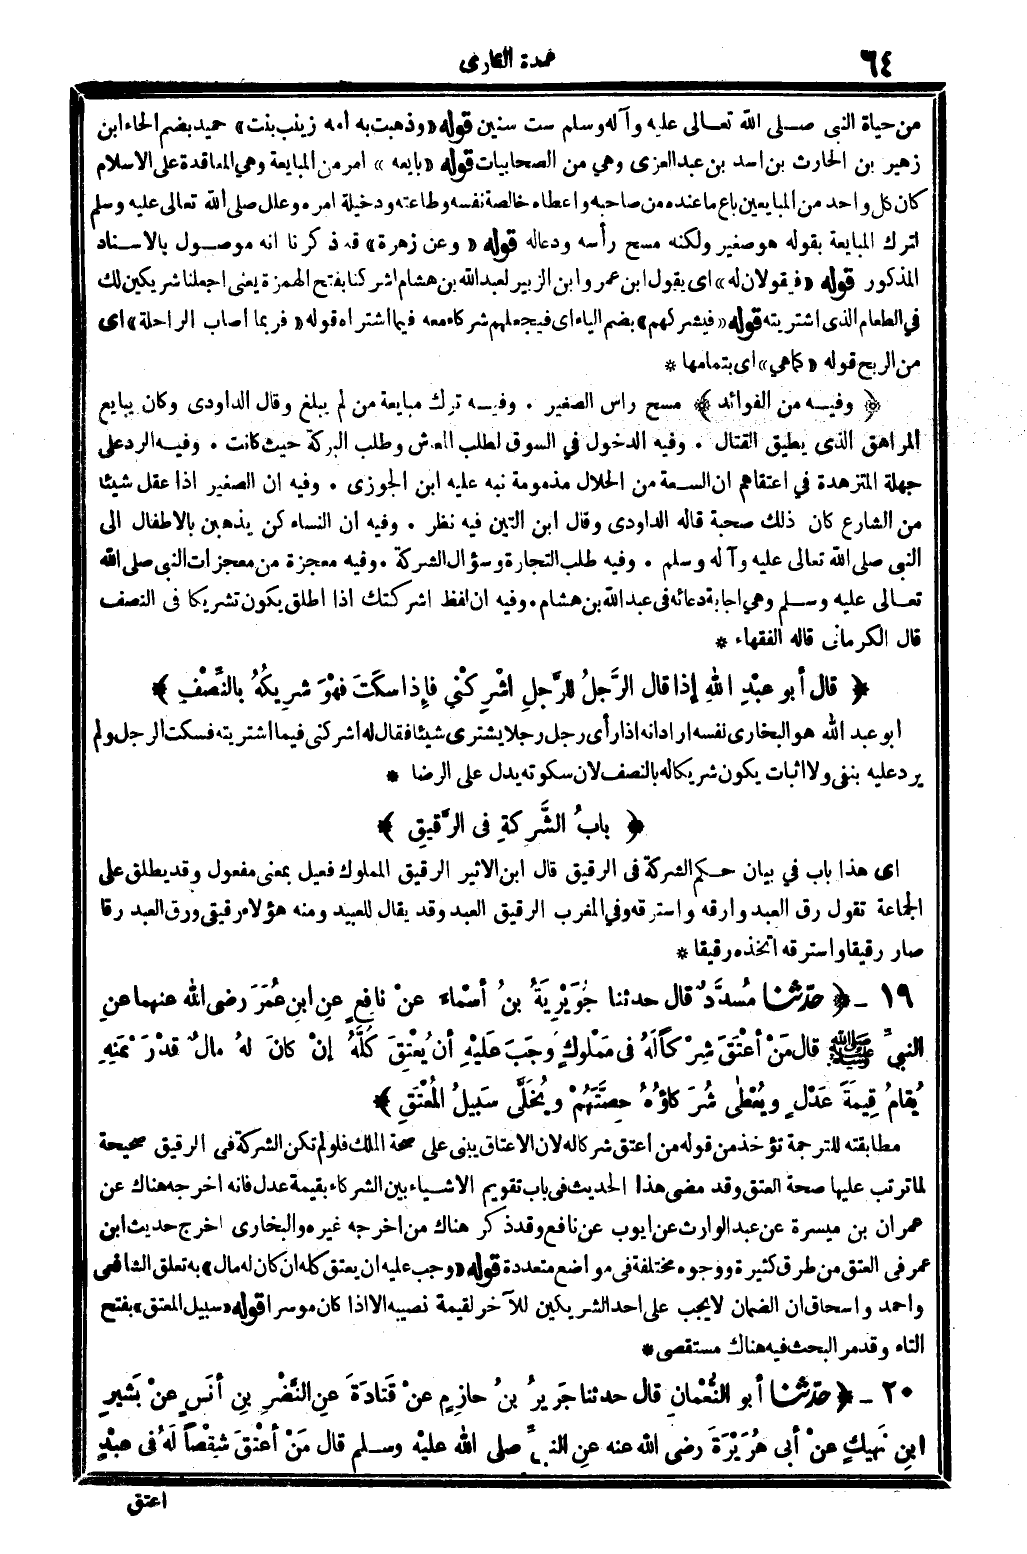 ٦٤
عمدة القارى
من حياة النبى صلى الله تعالى عليه وآله وسلم ست سنين قوله «وذهبت به أمه زينب بنت» حميد بضم الحاء ابن
زهير بن الحارث بن اسد بن عبد العزى وهي من الصحابيات قوله «بايعه» امر من المبايعة وهي المعاقدة على الاسلام
كان كل واحد من المبايعين باع ما عنده من صاحبه واعطاه خالصة نفسه وطاعته ودخيلة امره وعلل صلى الله تعالى عليه وسلم
لترك المبايعة بقوله هو صغير ولكنه مسح رأسه ودعا له قوله «وعن زهرة» قد ذكرنا انه موصول بالاسناد
المذكور قوله «فيقولان له» اى يقول ابن عمر وابن الزبير لعبدالله بن هشام اشركنا بفتح الهمزة يعنى اجعلنا شريكين لك
في الطعام الذى اشتريته قوله «فيشركهم» بضم الياء اى فيجعلهم شركاء معه فيما اشتراه قوله «فربما اصاب الراحلة» اى
من الربح قوله «كماهي» اى بتمامها *
﴿ وفيه من الفوائد ﴾ مسح راس الصغير . وفيه ترك مبايعة من لم يبلغ وقال الداودى وكان يبايع
المراهق الذى يطيق القتال . وفيه الدخول في السوق لطلب المعاش وطلب البركة حيث كانت . وفيه الرد على
جهلة المتزهدة في اعتقاهم ان السعة من الحلال مذمومة نبه عليه ابن الجوزى . وفيه ان الصغير اذا عقل شيئا
من الشارع كان ذلك صحبة قاله الداودى وقال ابن التين فيه نظر . وفيه ان النساء كن يذهبن بالاطفال الى
النبى صلى الله تعالى عليه وآله وسلم . وفيه طلب التجارة وسؤال الشركة . وفيه معجزة من معجزات النبى صلى الله
تعالى عليه وسلم وهي اجابة دعائه فى عبدالله بن هشام . وفيه ان لفظ اشركتك اذا اطلق يكون تشريكا فى النصف
قال الكرمانى قاله الفقهاء *
﴿ قال أبو عبْدِ اللهِ إذا قال الرَّجلُ للرَّجلِ اشْرِكْنِي فإِذا سكَتَ فهْوَ شرِيكُهُ بالنِّصْفِ ﴾
ابو عبد الله هو البخارى نفسه اراد انه اذا رأى رجل رجلا يشترى شيئا فقال له اشركنى فيما اشتريته فسكت الرجل ولم
يرد عليه بنفى ولا اثبات يكون شريكا له بالنصف لان سكوته يدل على الرضا *
﴿ بابُ الشَّرِكةِ فى الرَّقِيقِ ﴾
اى هذا باب في بيان حكم الشركة فى الرقيق قال ابن الاثير الرقيق المملوك فعيل بمعنى مفعول وقد يطلق على
الجماعة تقول رق العبد وارقه واسترقه وفي المغرب الرقيق العبد وقد يقال للعبيد ومنه هؤلاء رقيقى ورق العبد رقا
صار رقيقا واسترقه اتخذه رقيقا *
١٩ - ﴿ حدّثنا مُسدَّدٌ قال حدثنا جُوَيْرِيَةُ بنُ أسْماءَ عنْ نافِعٍ عنِ ابنِ عُمَرَ رضى الله عنهما عنِ
النبيِّ ﷺ قال مَنْ أعْتَقَ شِرْكاً لَهُ فى مَمْلوكٍ وجَبَ عَلَيْهِ أنْ يُعْتِقَ كُلَّهُ إنْ كانَ لهُ مالٌ قدْرَ ثمَنِهِ
يُقامُ قِيمَةَ عَدْلٍ ويُعْطى شُرَكاؤُهُ حِصَّتَهُمْ ويُخَلَّى سَبِيلُ المُعْتَقِ ﴾
مطابقته للترجمة تؤخذ من قوله من اعتق شركا له لان الاعتاق يبنى على صحة الملك فلو لم تكن الشركة فى الرقيق صحيحة
لما ترتب عليها صحة العتق وقد مضى هذا الحديث فى باب تقويم الاشياء بين الشركاء بقيمة عدل فانه اخرجه هناك عن
عمران بن ميسرة عن عبد الوارث عن ايوب عن نافع وقد ذكر هناك من اخرجه غيره والبخارى اخرج حديث ابن
عمر فى العتق من طرق كثيرة ووجوه مختلفة فى مواضع متعددة قوله «وجب عليه ان يعتق كله ان كان له مال» به تعلق الشافعى
واحمد واسحاق ان الضمان لا يجب على احد الشريكين للآخر لقيمة نصيبه الا اذا كان موسرا قوله «سبيل المعتق» بفتح
التاء وقد مر البحث فيه هناك مستقصى *
٢٠ - ﴿ حدّثنا أبو النُّعْمانِ قال حدثنا جَرِيرُ بنُ حازِمٍ عنْ قَتادَةَ عنِ النَّضْرِ بنِ أنَسٍ عنْ بَشِيرِ
ابنِ نَهِيكٍ عنْ أبى هُرَيْرَةَ رضى الله عنه عنِ النبيِّ صلى الله عليْه وسلم قال مَنْ أعْتَقَ شِقْصاً لَهُ فى عبْدٍ
اعتق